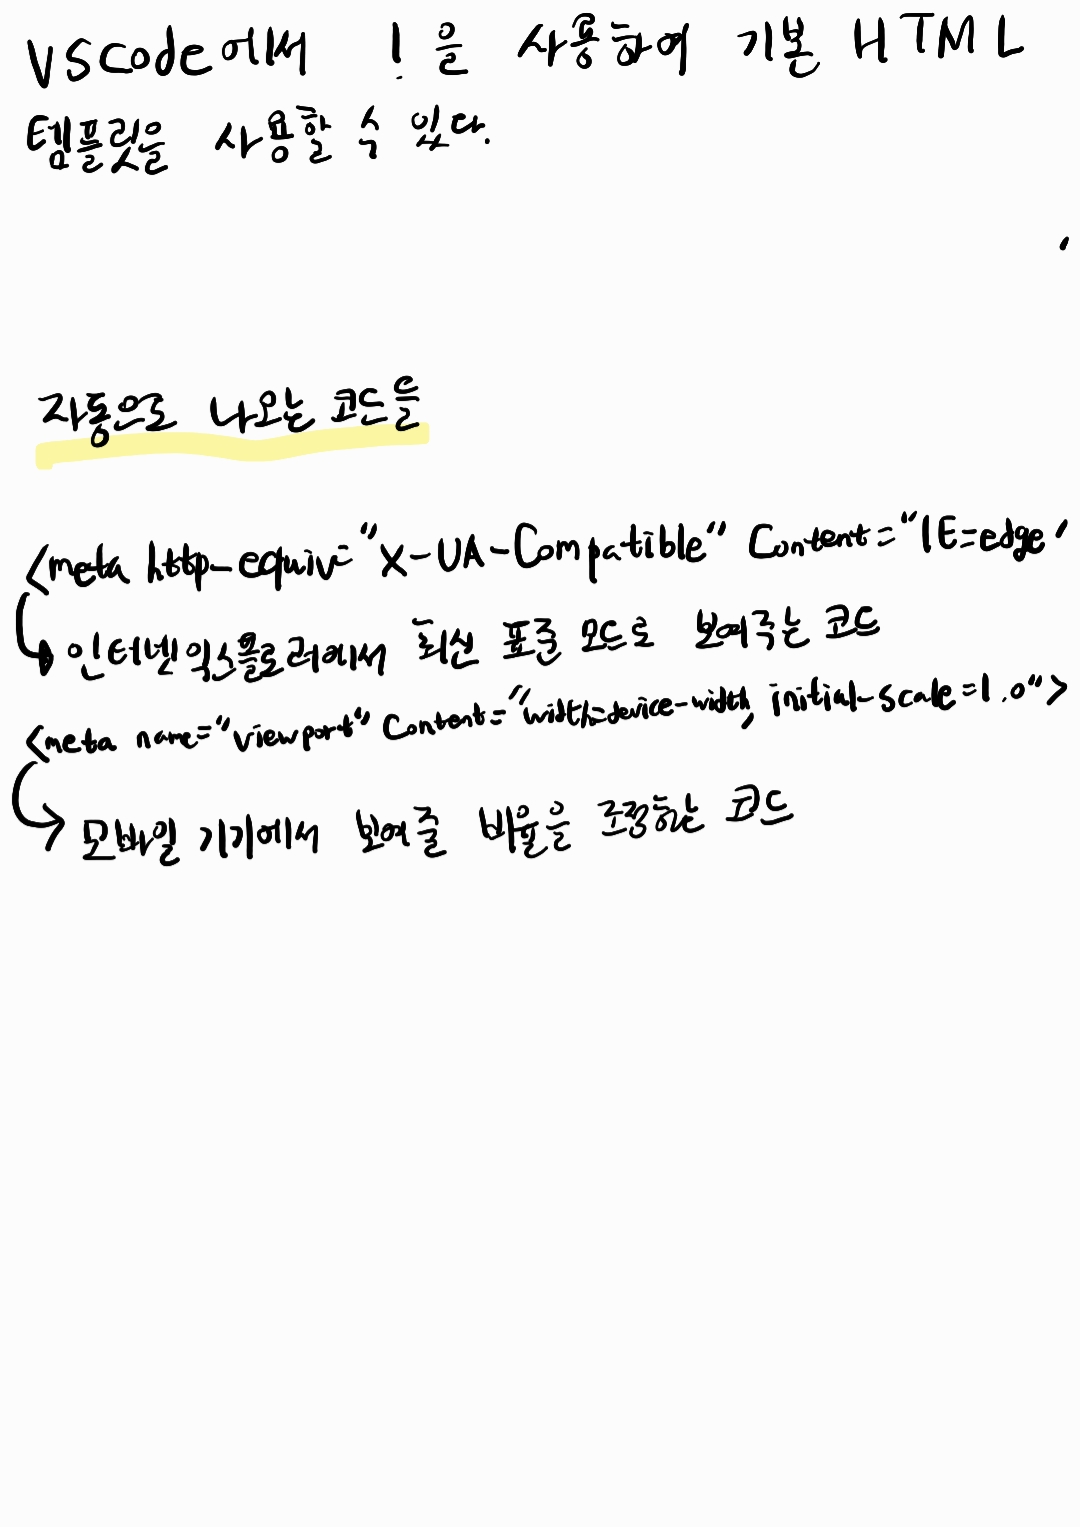 VScode에서 ! 을 사용하여 기본 HTML
템플릿을 사용할 수 있다.
자동으로 나오는 코드들
<meta http-equiv="X-UA-Compatible" Content="IE=edge'
인터넷 익스플로러에서 최신 표준 모드로 보여주는 코드
<meta name="viewport" Content="width=device-width, initial-scale=1.0">
모바일 기기에서 보여줄 비율을 조정하는 코드